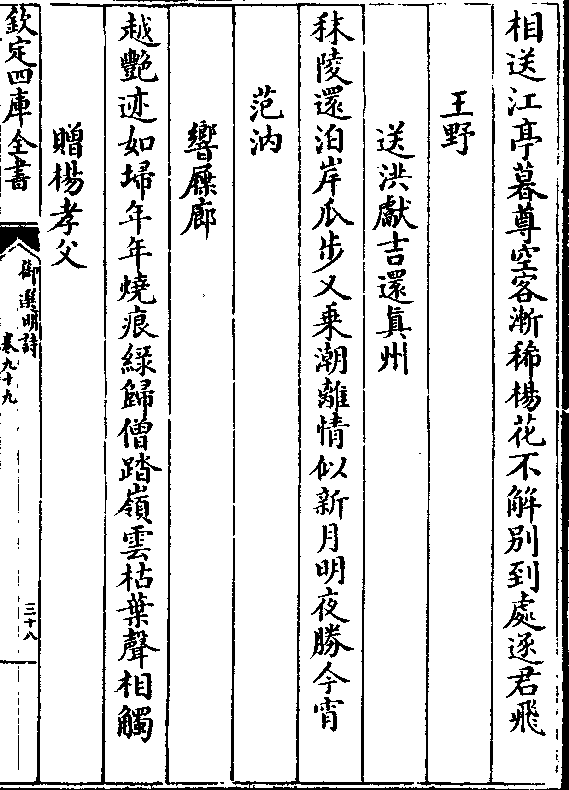 相送江亭暮尊空客漸稀楊花不解別到處逐君飛
王野
送洪獻吉還真州
秣陵還泊岸瓜步又乗潮離情似新月明夜勝今宵
范汭
響屧廊
越艷迹如埽年年燒痕緑歸僧踏嶺雲枯葉聲相觸
贈楊孝父
欽定四庫全書
御選明詩
卷九十九
三十八